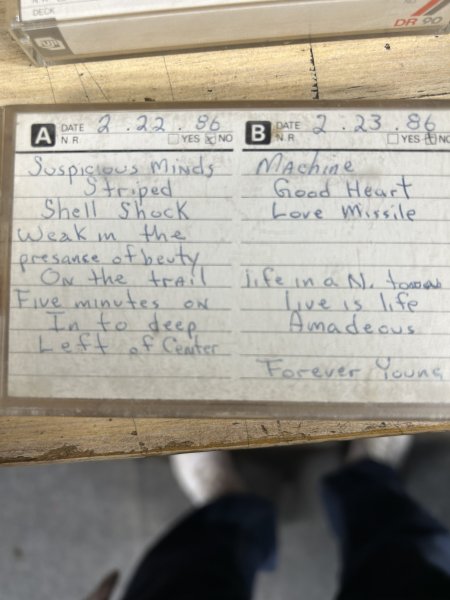 DECK
DR 90
A DATE 2.22.86
N.R. YES NO
Suspicious Minds
Striped
Shell Shock
Weak in the
presance of beuty
On the trail
Five minutes on
In to deep
Left of Center
B DATE 2.23.86
N.R. YES NO
Machine
Good Heart
Love Missile
life in a N. town
live is life
Amadeous
Forever Young